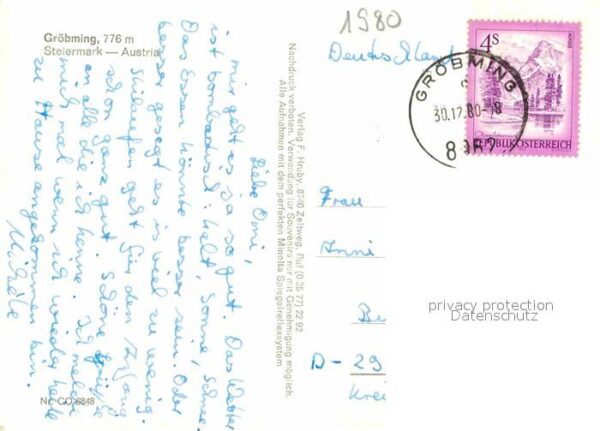 Gröbming, 776 m
Steiermark — Austria
1980
Deutschland
4S
ALMSEE
REPUBLIK ÖSTERREICH
GRÖBMING
30.12.80-18
8962
Liebe Omi,
mir geht es ja so gut. Das Wetter
ist bombastisch: kalt, Sonne, Schnee.
Das Essen könnte besser sein. Oder
besser gesagt es ist viel zu wenig.
Skilaufen geht für den Anfang
schon ganz gut. Schöne Grüße
an alle die ich kenne. Ich melde
mich mal wenn ich wieder heile
zu Hause angekommen bin.
Michèle
Verlag F. Hruby, 8740 Zeltweg, Ruf (0 35 77) 22 92
Nachdruck verboten. Verwendung für Souvenirs nur mit Genehmigung möglich.
Alle Aufnahmen mit dem perfekten Minolta Spiegelreflexsystem
Frau
Anni
D-29
Krei
privacy protection
Datenschutz
Nr. CO 6848